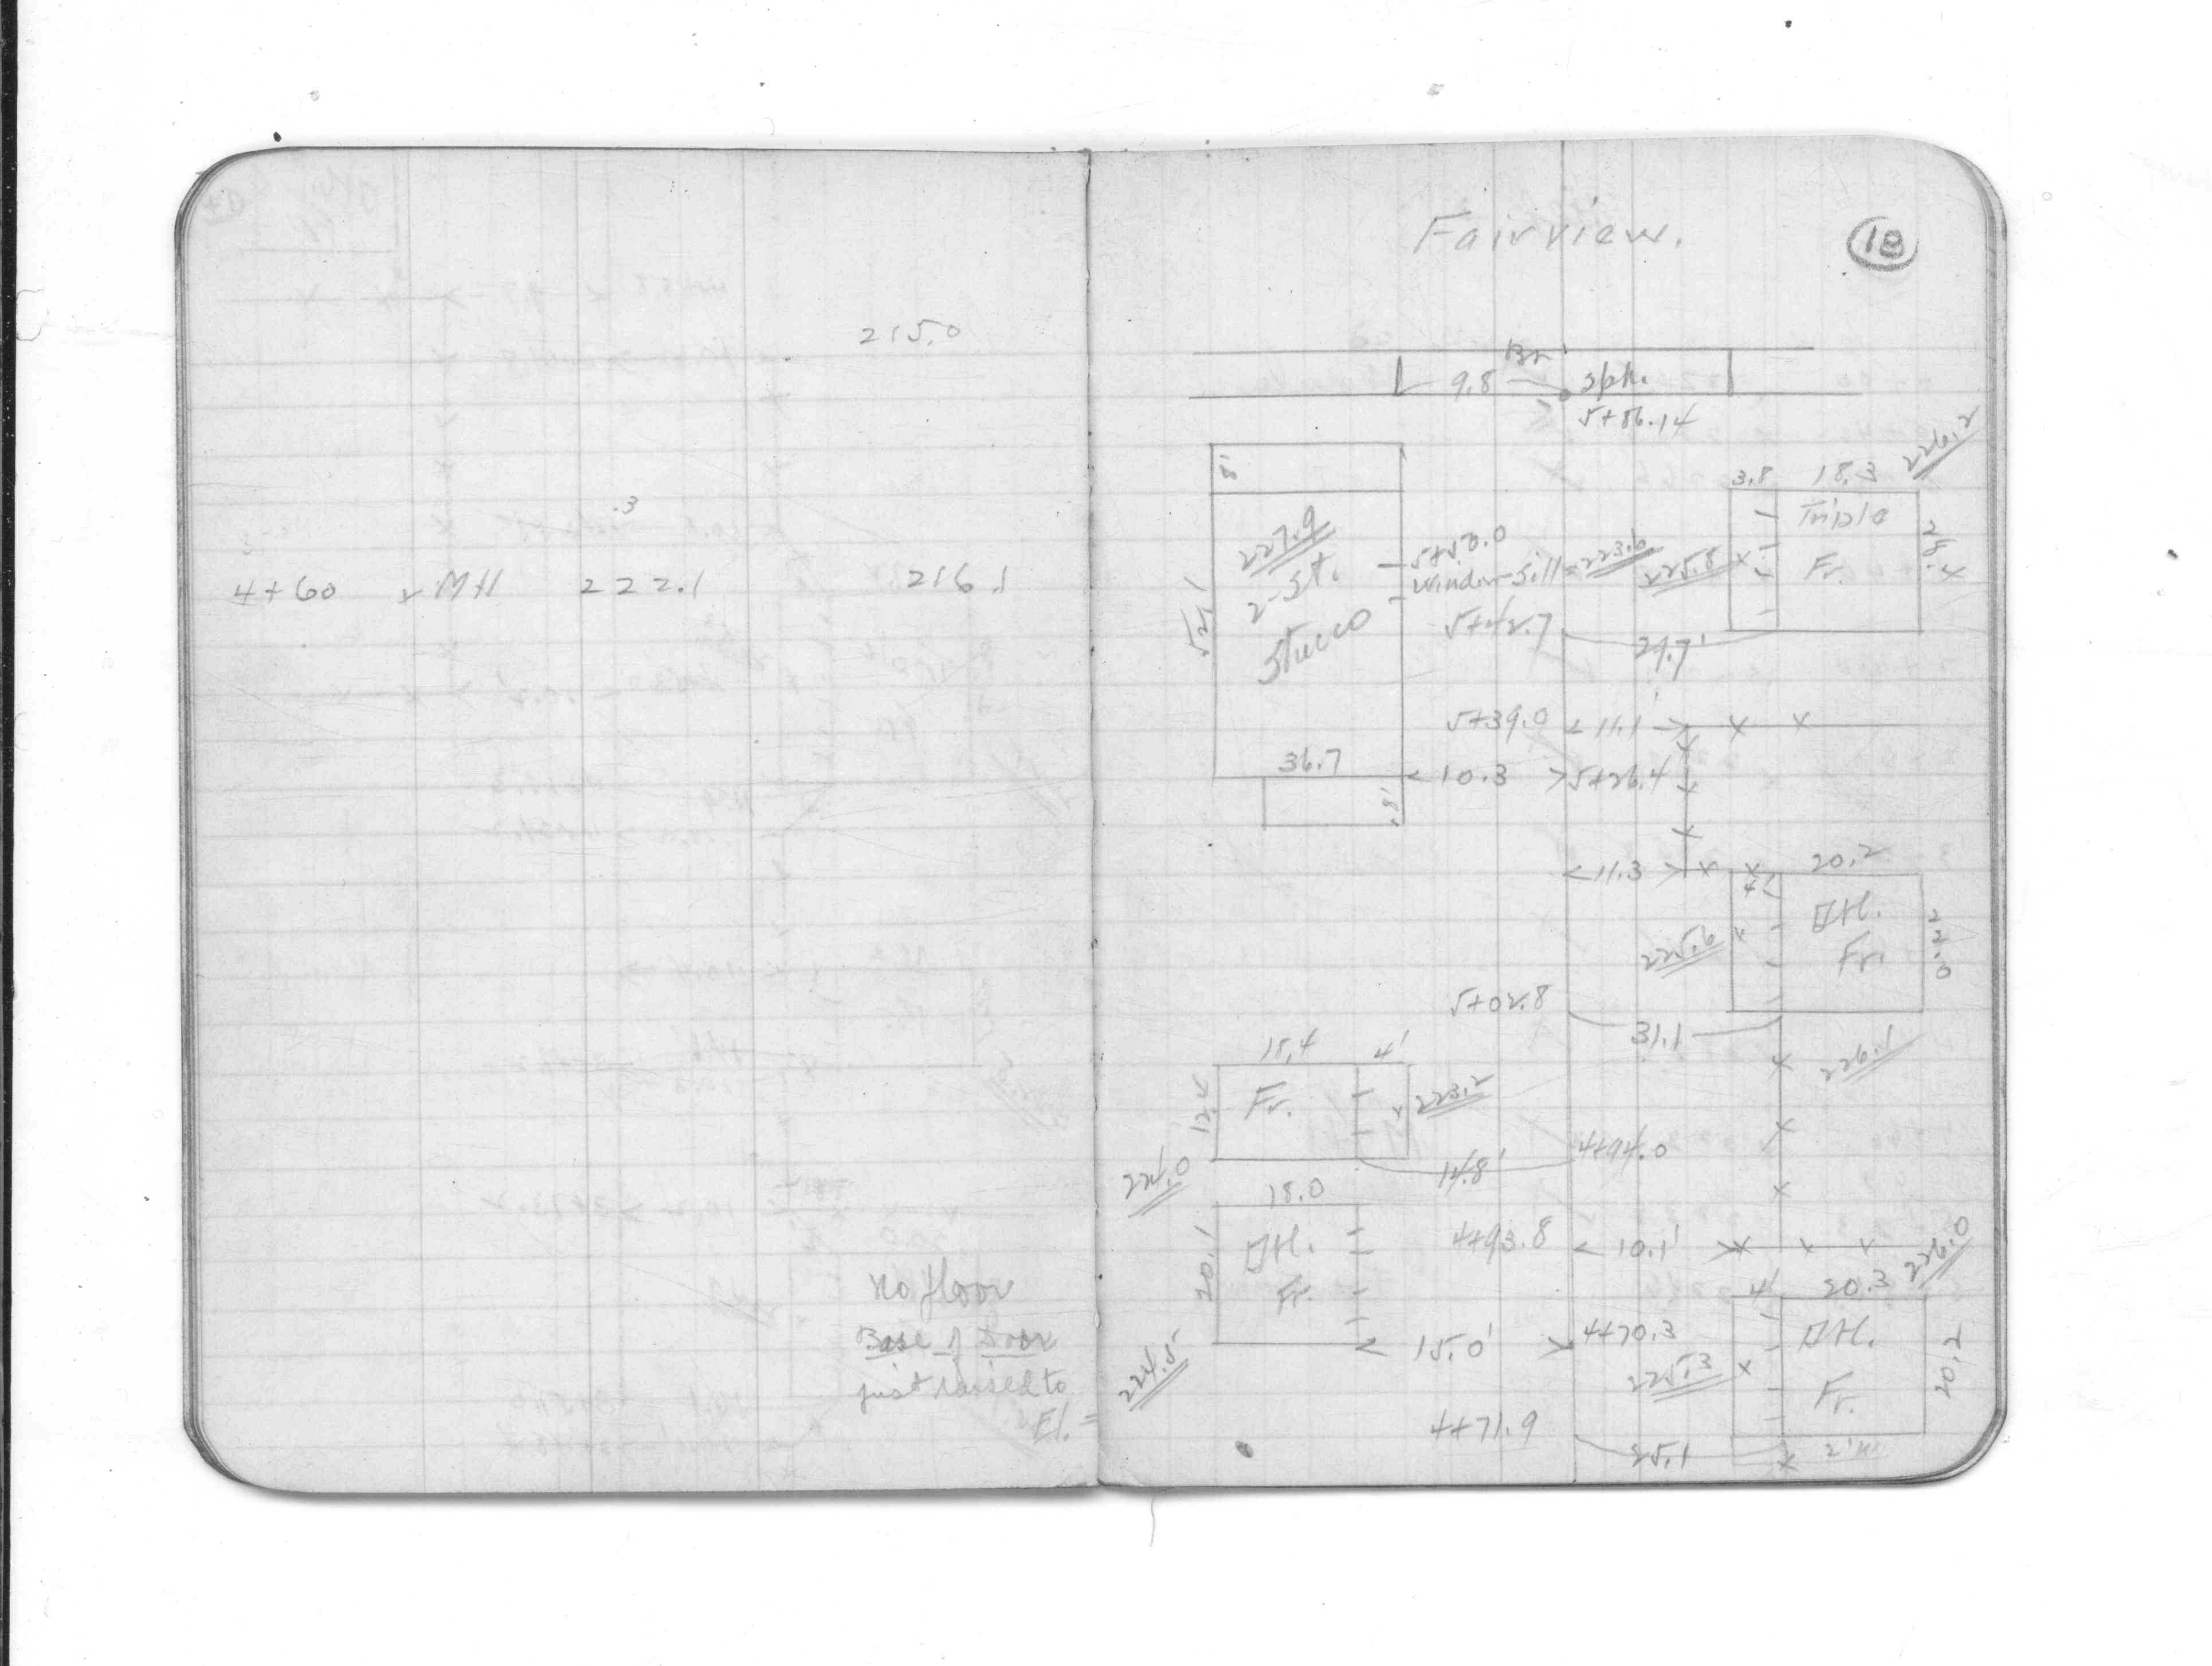 215.0
.3
4+60 MH 222.1 216.1
no floor
Base of Door
just raised to
El. =
Fairview.
18
Br
9.8 spk.
5+86.14
226.2
8'
3.8 18.3
227.9
2-St.
Stucco
52.1
36.7
8'
5+50.0
Window Sill = 223.6
5+42.7
225.8
Triple
Fr.
28.4
29.7'
5+39.0 11.1'
10.3 5+26.4
11.3
20.2
4'
DH.
Fr.
22.0
225.6
5+02.8
31.1
226.1
15.4 4'
12.4
Fr.
223.2
224.0
14.8'
4+94.0
18.0
20.1
DH.
Fr.
4+93.8 10.1'
226.0
4' 20.3
15.0' 4+70.3
DH.
Fr.
20.2
225.3
224.5
4+71.9
25.1